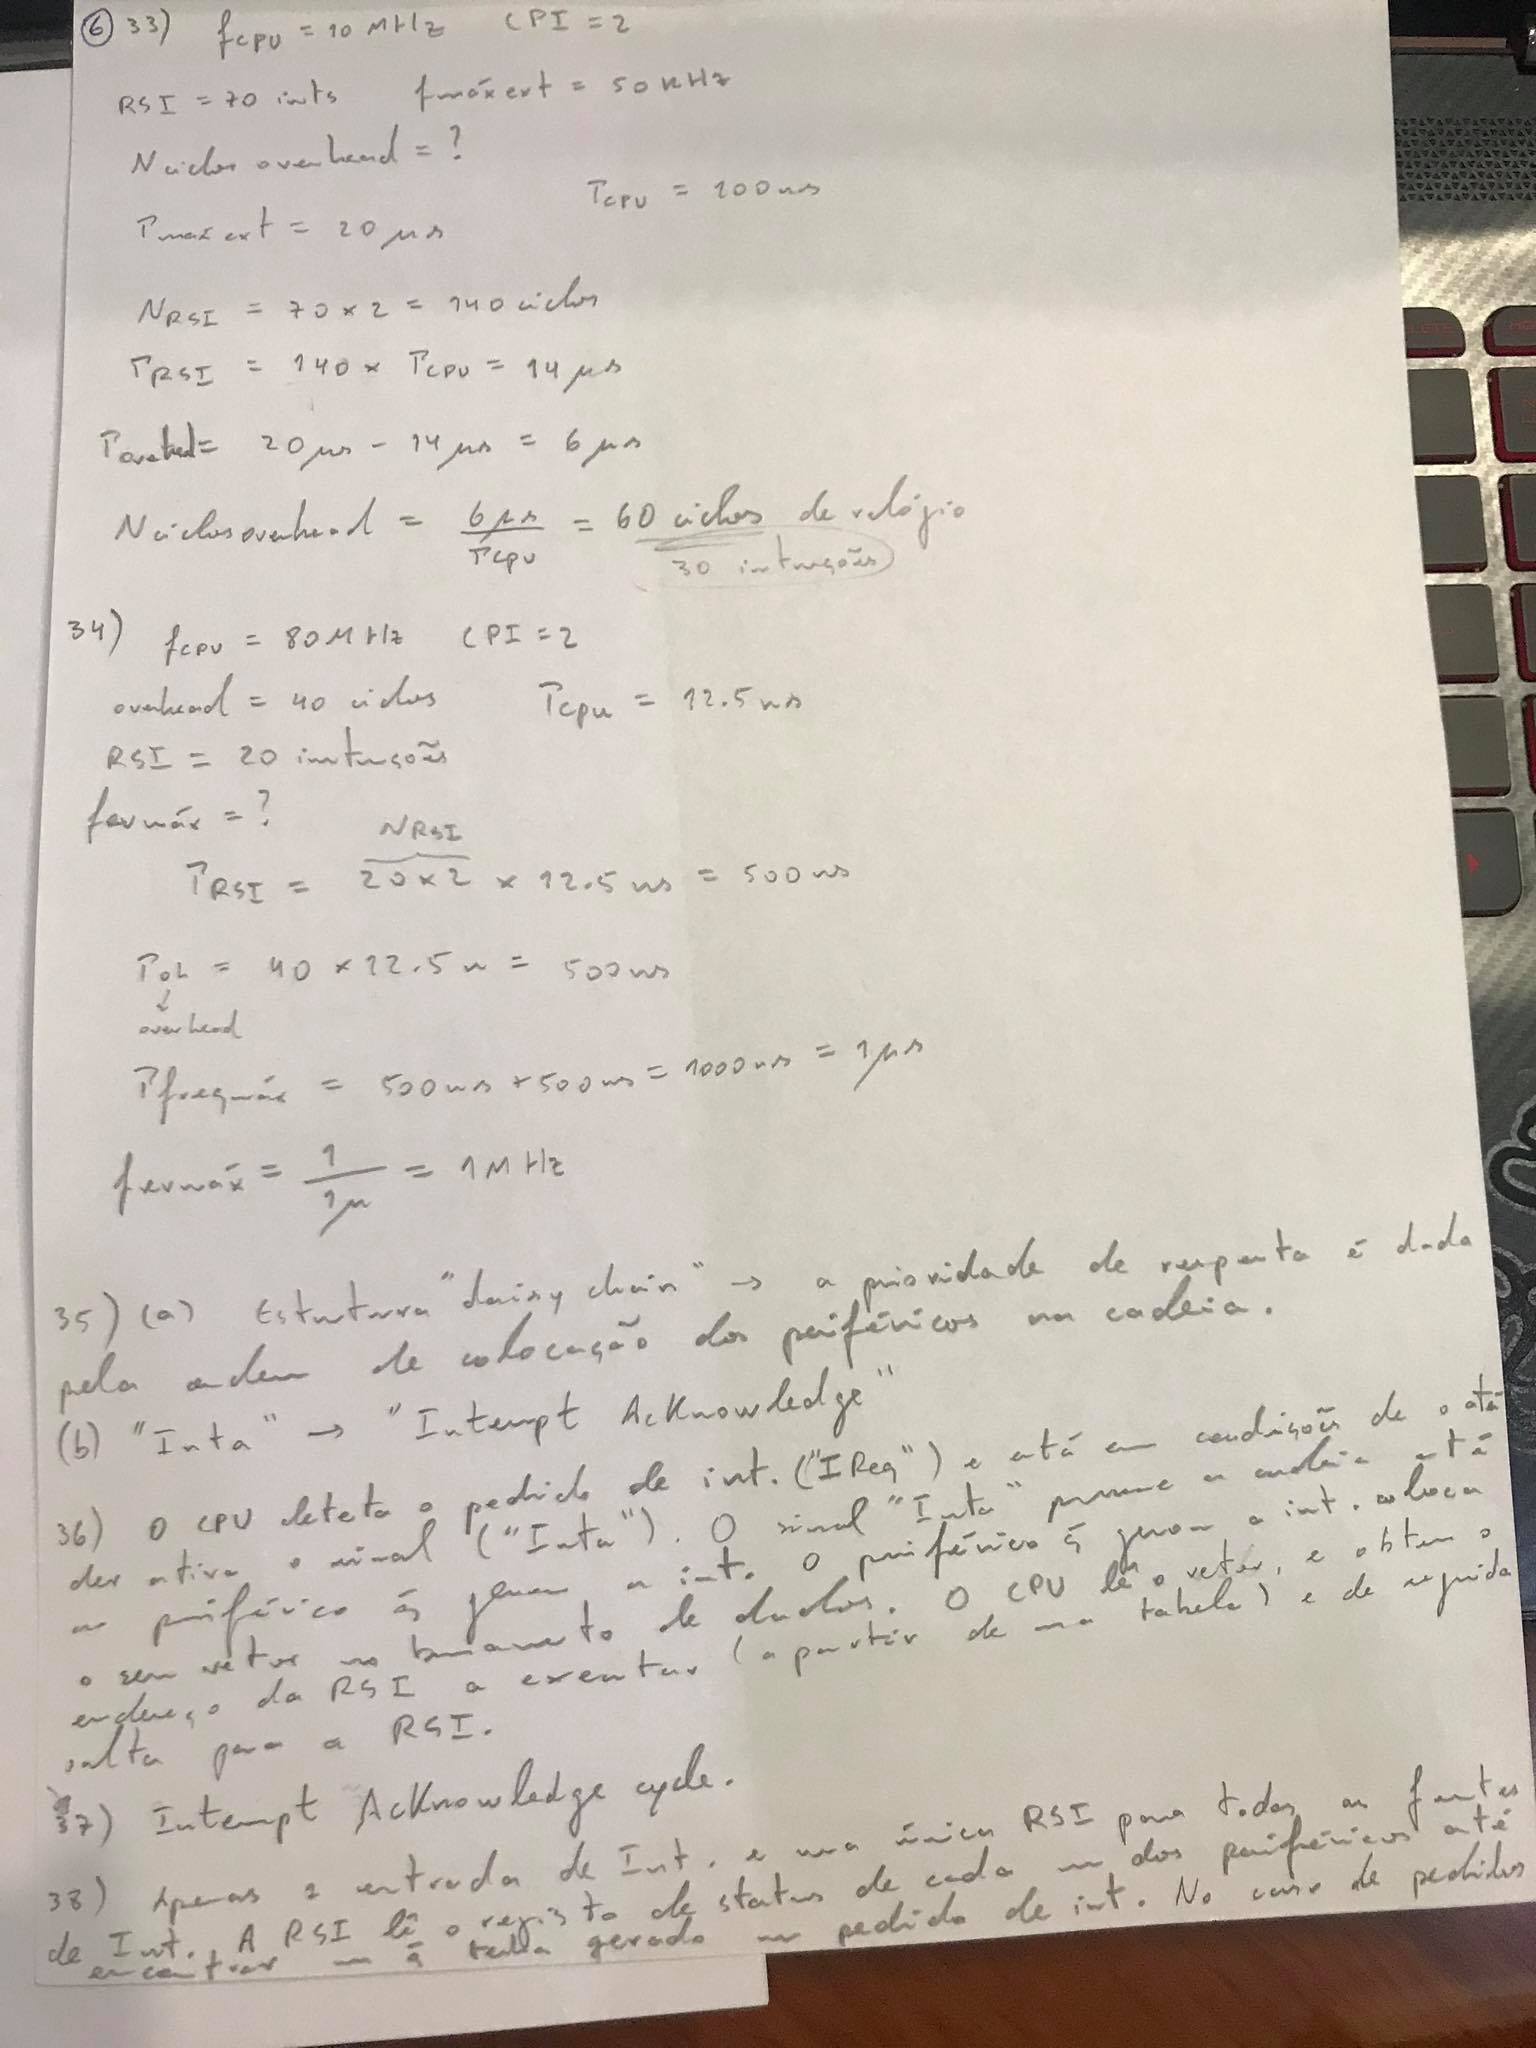 ⑥ 33) fCPU = 10 MHz CPI = 2
RSI = 70 insts fmáx ext = 50 KHz
N ciclos overhead = ?
TCPU = 100 ns
Tmáx ext = 20 μs
NRSI = 70 × 2 = 140 ciclos
TRSI = 140 × TCPU = 14 μs
Toverhead = 20 μs - 14 μs = 6 μs
N ciclos overhead = 6 μs / Tcpu = 60 ciclos de relógio
30 intruções
34) fCPU = 80 MHz CPI = 2
overhead = 40 ciclos Tcpu = 12.5 ns
RSI = 20 intruções
fevmáx = ?
NRSI
TRSI = 20 × 2 × 12.5 ns = 500 ns
TOL = 40 × 12.5 n = 500 ns
↓
overhead
Tfreqmáx = 500 ns + 500 ns = 1000 ns = 1 μs
fevmáx = 1 / 1μ = 1 MHz
35) (a) Estrutura "daisy chain" → a prioridade de resposta é dada
pela ordem de colocação dos periféricos na cadeia.
(b) "Inta" → "Interrupt Acknowledge"
36) O CPU deteta o pedido de int. ("IReq") e está em condições de o aten
der ativa o sinal ("Inta"). O sinal "Inta" percorre a cadeia até
ao periférico q gerou a int. O periférico q gerou a int. coloca
o seu vetor no barramento de dados. O CPU lê o vetor, e obtem o
endereço da RSI a executar (a partir de uma tabela) e de seguida
salta para a RSI.
37) Interrupt Acknowledge cycle.
38) Apenas 1 entrada de Int. e uma única RSI para todas as fontes
de Int. A RSI lê o registo de status de cada um dos periféricos até
encontrar um q tenha gerado um pedido de int. No caso de pedidos